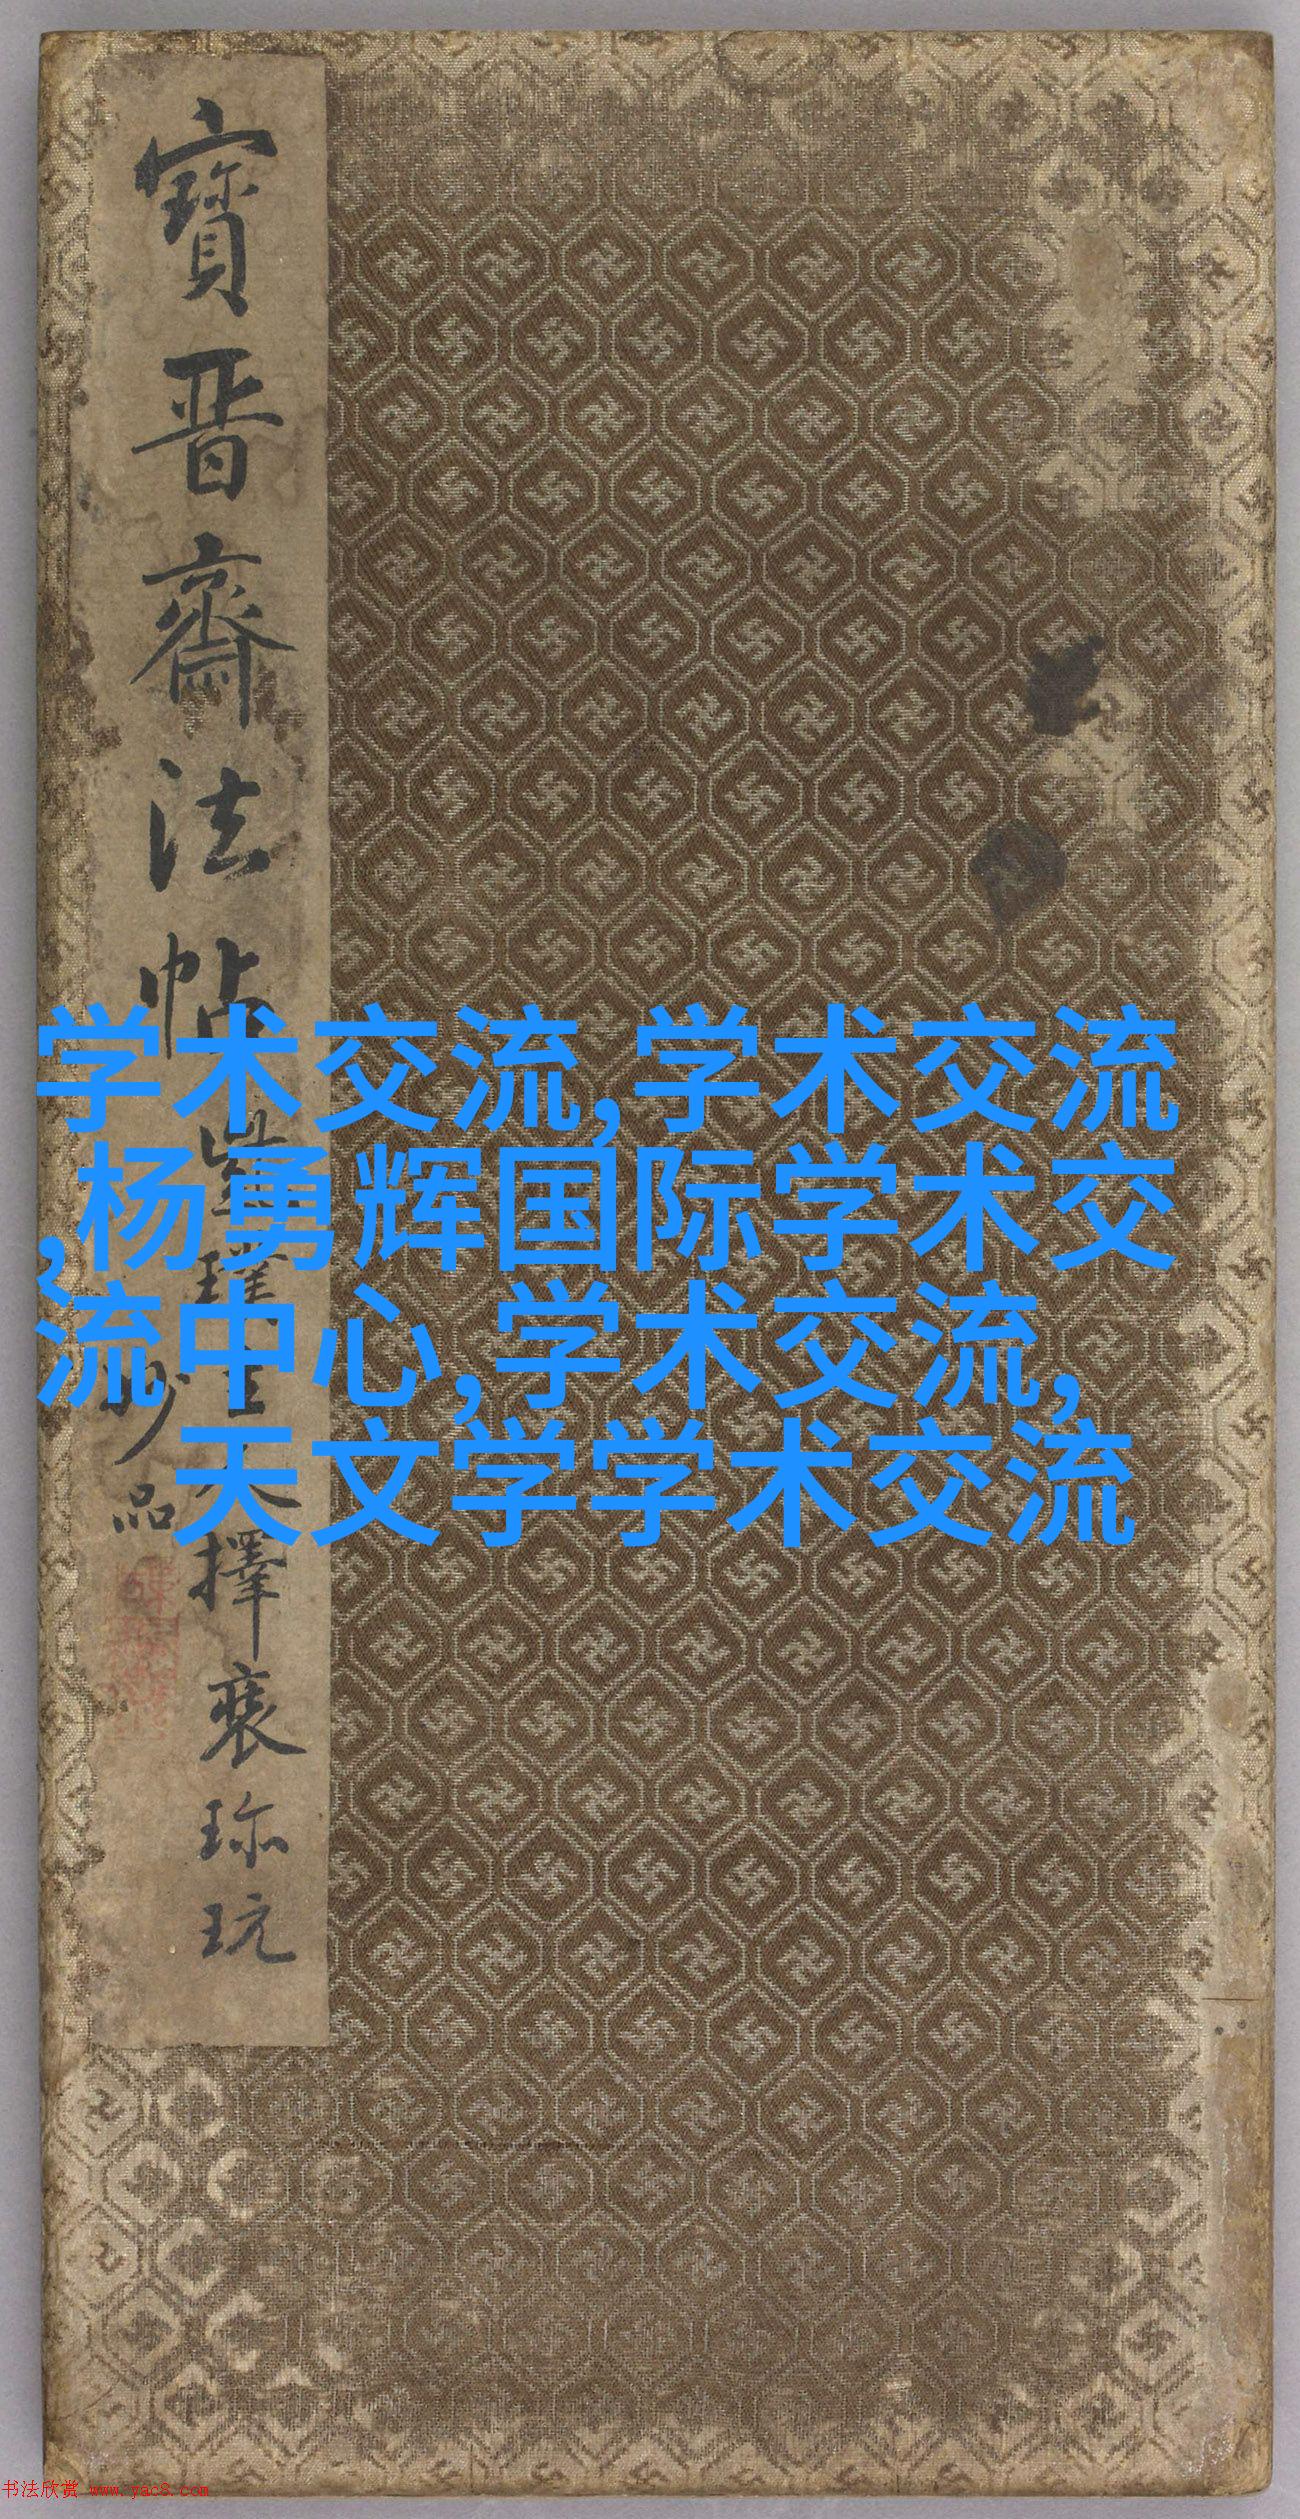 寶晉齋法帖
擇裘珎玩
品
学术交流,学术交流
,杨勇辉国际学术交
流中心,学术交流,
天文学学术交流
书法欣赏 www.yac8.com